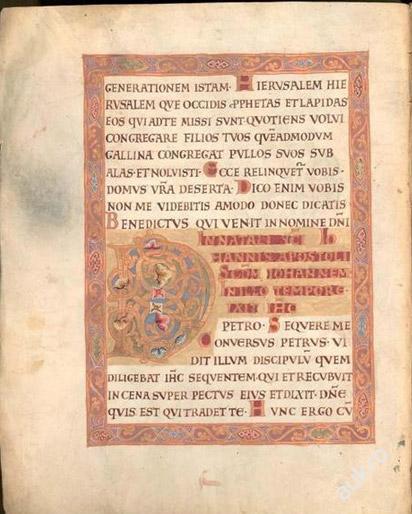 GENERATIONEM ISTAM · HIERUSALEM HIE
RVSALEM QVE OCCIDIS PPHETAS ET LAPIDAS
EOS QVI AD TE MISSI SVNT · QVOTIENS VOLVI
CONGREGARE FILIOS TVOS QVEADMODVM
GALLINA CONGREGAT PVLLOS SVOS SVB
ALAS · ET NOLVISTI · ECCE RELINQVET VOBIS ·
DOMVS VRA DESERTA · DICO ENIM VOBIS
NON ME VIDEBITIS AMODO DONEC DICATIS
BENEDICTVS QVI VENIT IN NOMINE DNI
IN NATALI SCI IO
HANNIS APOSTOLI
SCDM IOHANNEM
IN ILLO TEMPORE ·
DIXIT IHC
PETRO · SEQVERE ME
CONVERSVS PETRVS · VI
DIT ILLVM DISCIPVLV QVEM
DILIGEBAT IHC SEQVENTEM · QVI ET RECVBVIT
IN CENA SVPER PECTVS EIVS ET DIXIT · DNE
QVIS EST QVI TRADET TE · HVNC ERGO CV